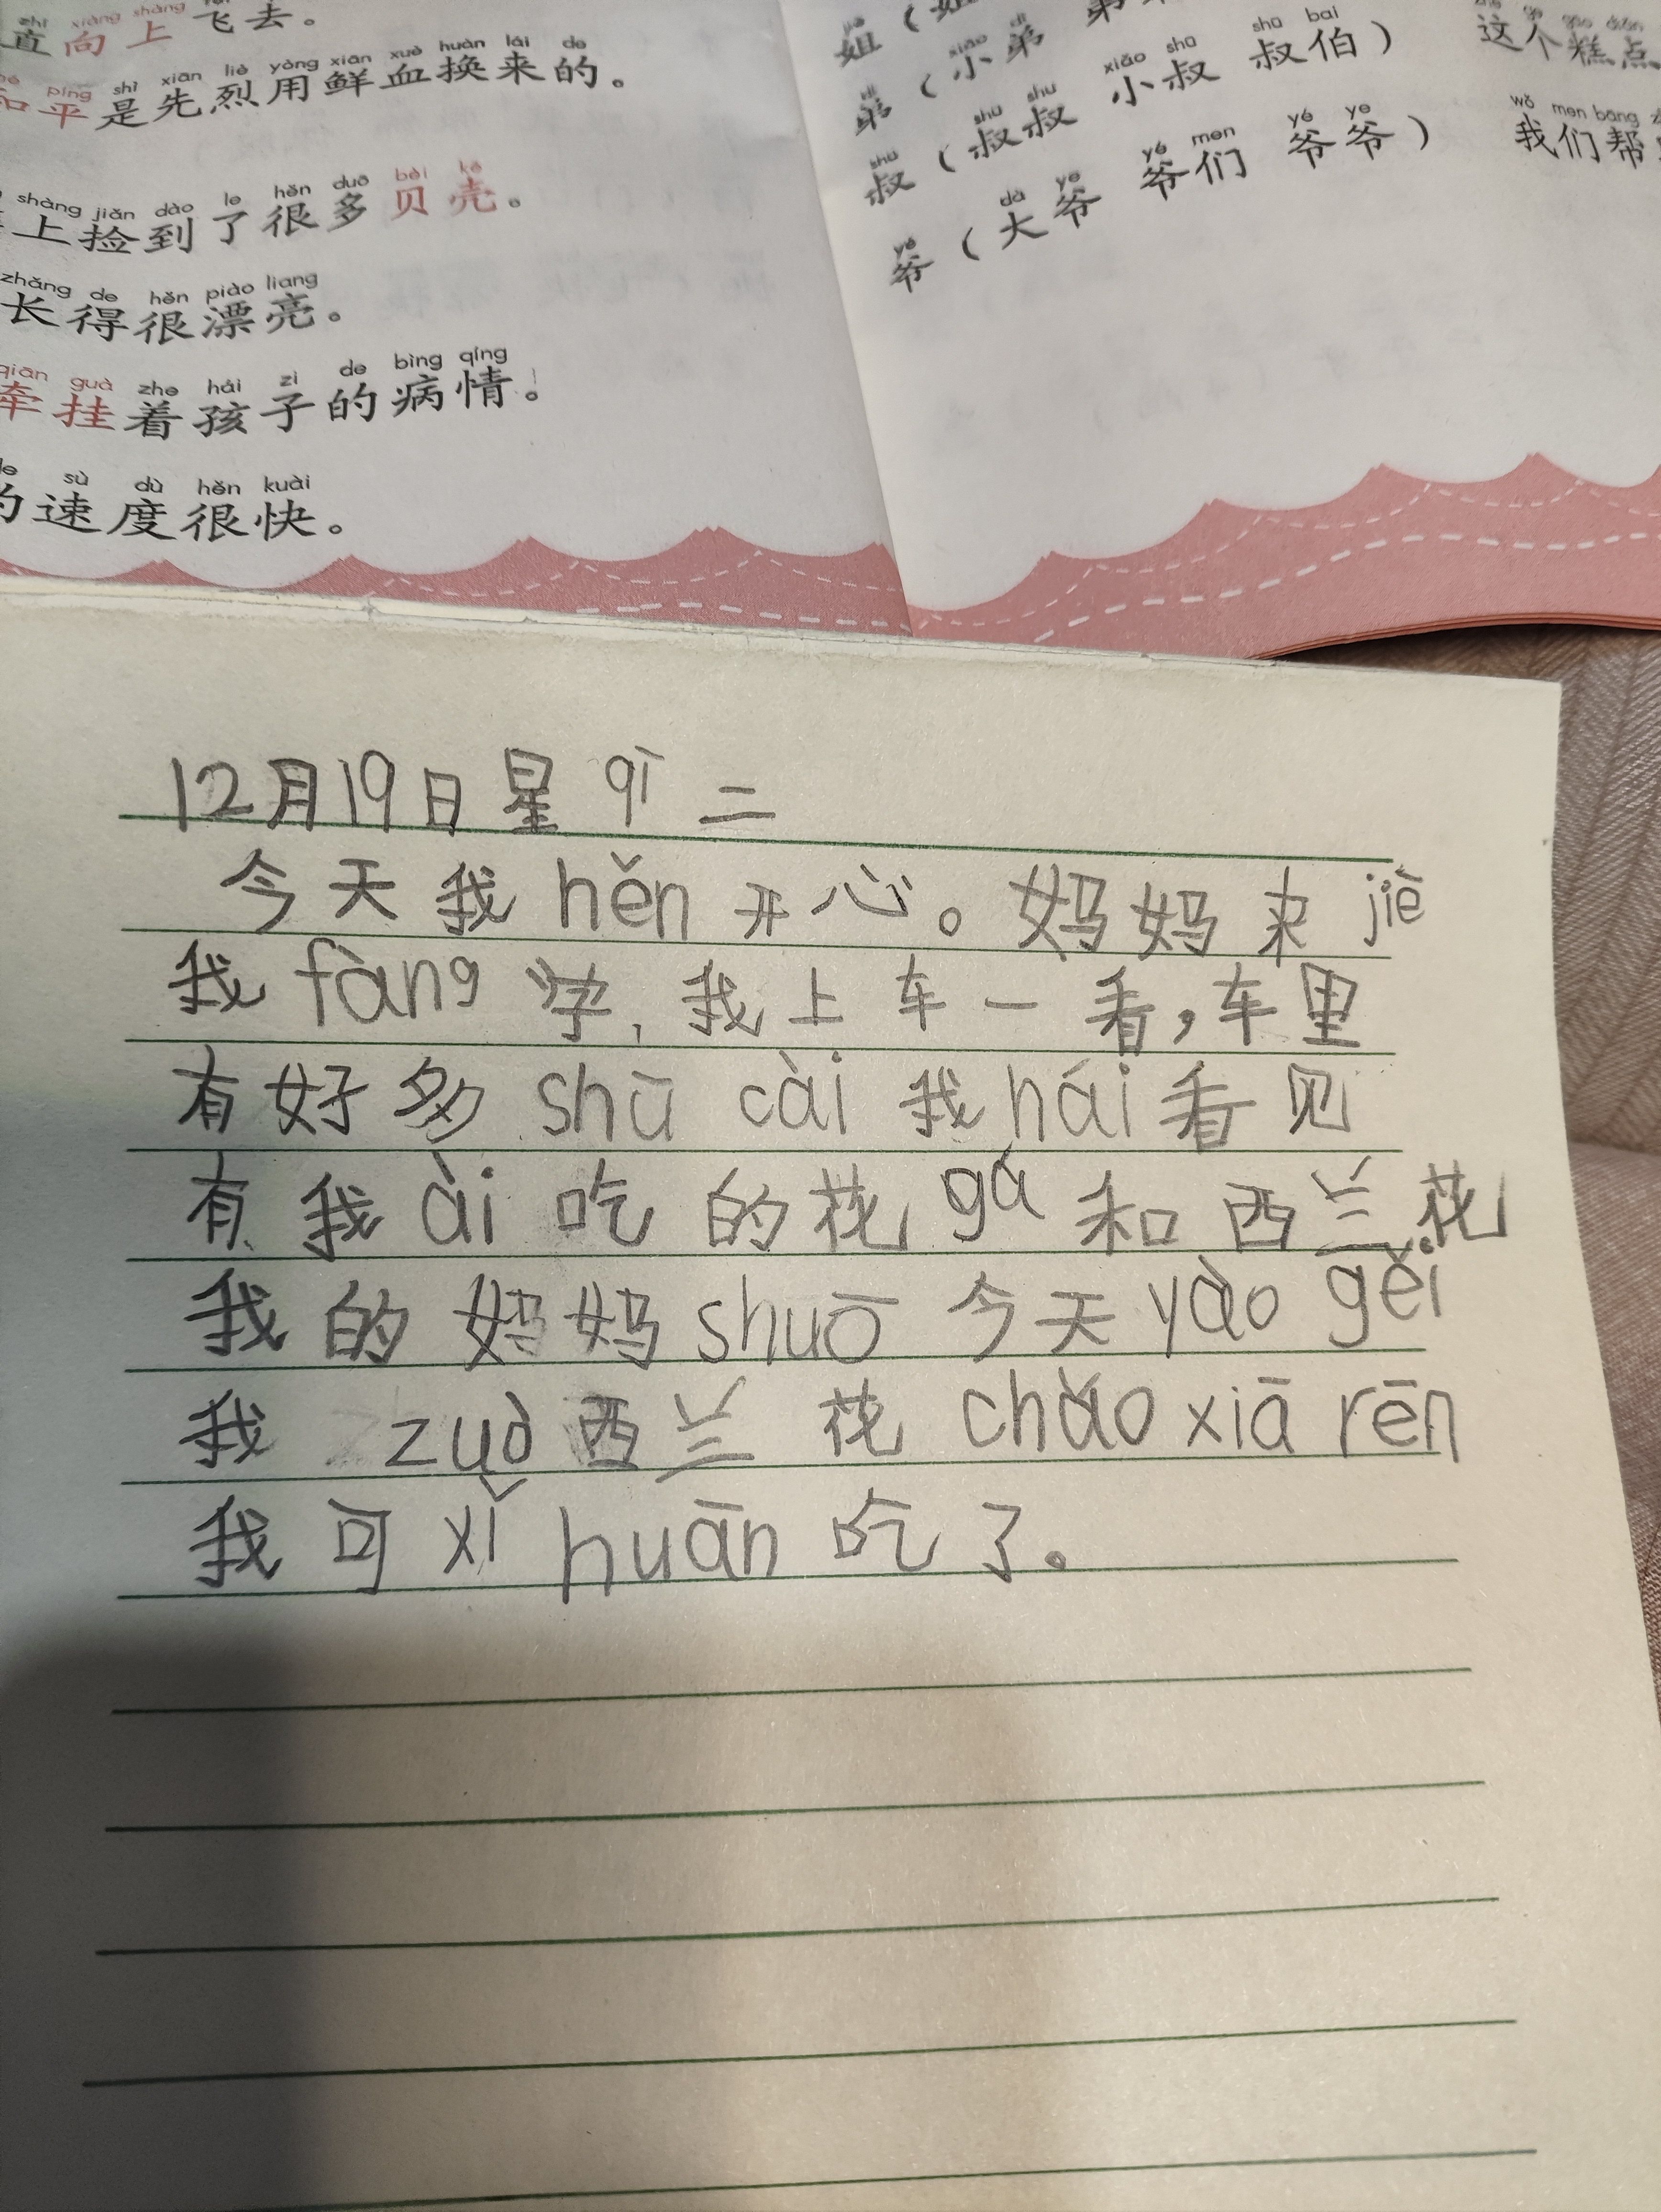 zhí xiàng shàng fēi
直向上飞去。
píng shì xiān liè yòng xiān xuè huàn lái de
和平是先烈用鲜血换来的。
shàng jiǎn dào le hěn duō bèi ké
上捡到了很多贝壳。
zhǎng de hěn piào liang
长得很漂亮。
qiān guà zhe hái zi de bìng qíng
牵挂着孩子的病情。
de sù dù hěn kuài
的速度很快。
姐（姐
dì xiǎo dì
弟（小弟 弟
shū shū shu xiǎo shū shū bai
叔（叔叔 小叔 叔伯）
yé dà ye yé men yé ye
爷（大爷 爷们 爷爷）
zhè ge gāo diǎn
这个糕点
wǒ men bāng
我们帮
12月19日星qī二
今天我hěn开心。妈妈来jiē
我fàng学，我上车一看，车里
有好多shū cài我hái看见
有我ài吃的花gá和西兰花
我的妈妈shuō今天yào gěi
我zuò西兰花chǎo xiā rēn
我可xǐ huān吃了。